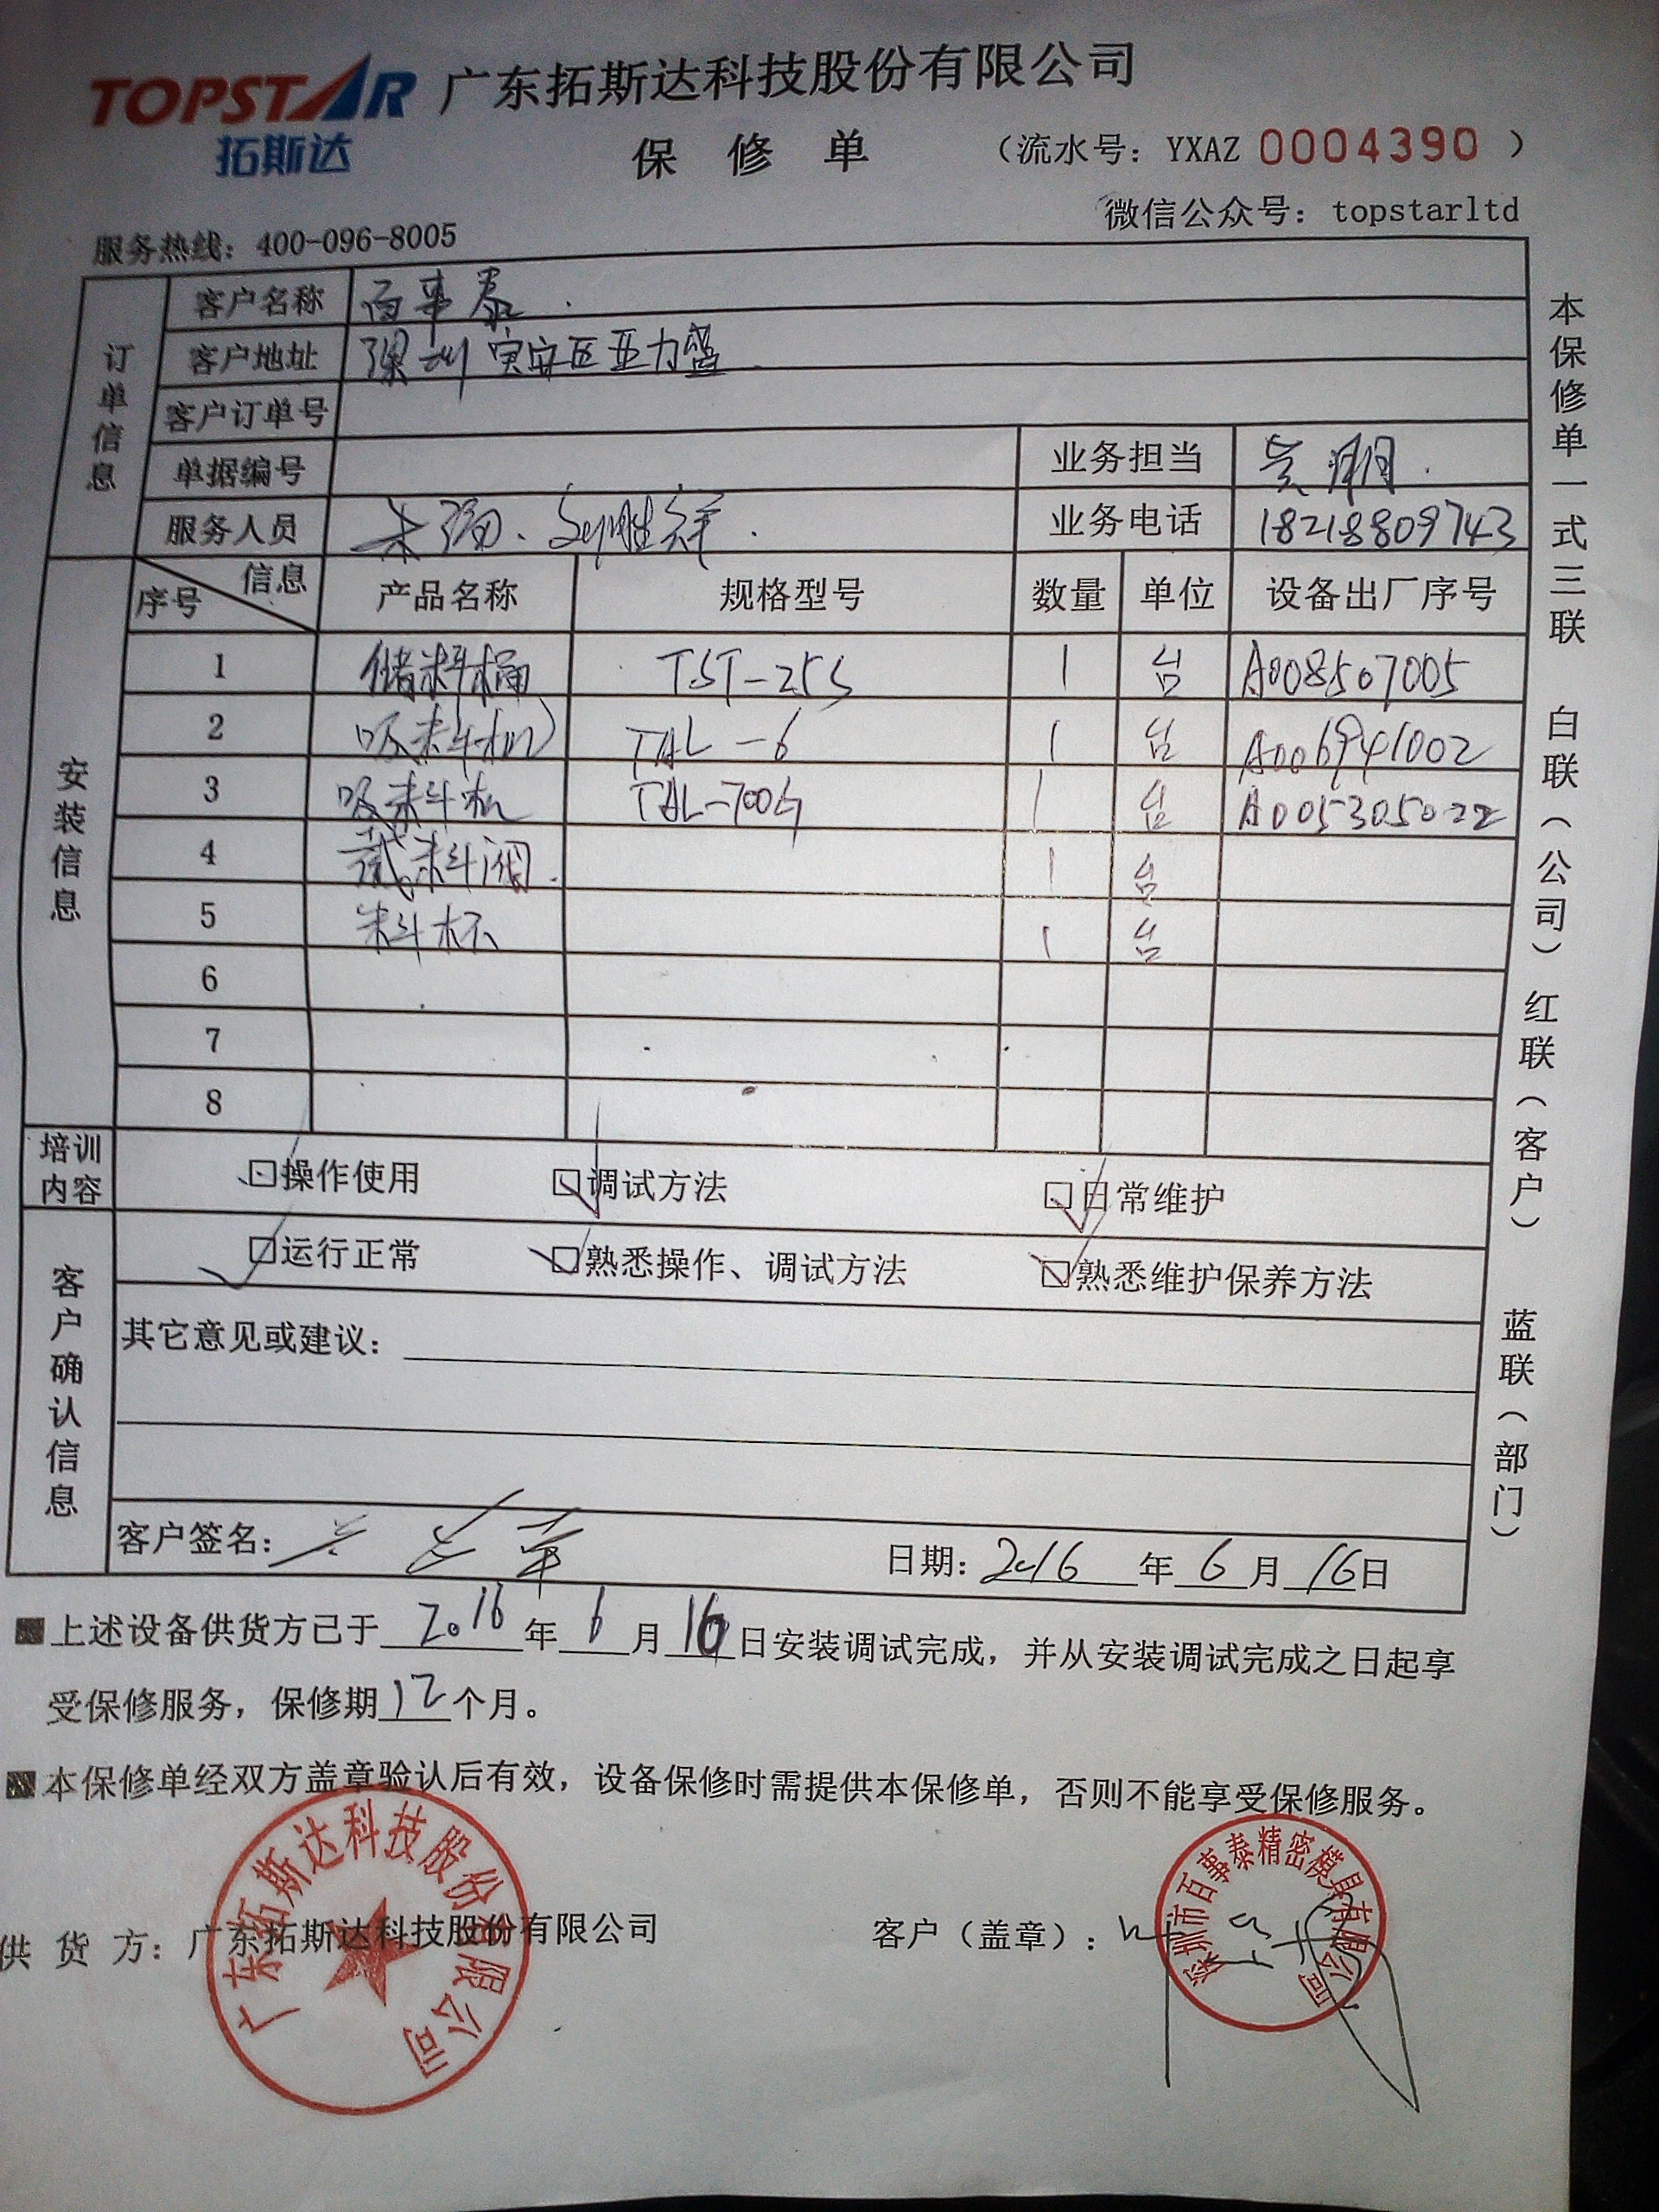 TOPSTAR 广东拓斯达科技股份有限公司
拓斯达
保修单 (流水号: YXAZ 0004390)
微信公众号: topstarltd
服务热线: 400-096-8005
订单信息
客户名称 百事泰
客户地址 深圳宝安区亚力盛
客户订单号
单据编号 业务担当
服务人员 朱强、 业务电话 18218809743
安装信息
序号 信息 产品名称 规格型号 数量 单位 设备出厂序号
1 储料桶 TST-25S 1 台 A008507005
2 吸料机 TAL-6 1 台 A006941002
3 吸料机 TAL-700G 1 台 A005305022
4 截料阀 1 台
5 料杯 1 台
6
7
8
培训内容 操作使用 调试方法 日常维护
客户确认信息
运行正常 熟悉操作、调试方法 熟悉维护保养方法
其它意见或建议:
客户签名: 日期: 2016年6月16日
上述设备供货方已于2016年6月16日安装调试完成, 并从安装调试完成之日起享
受保修服务, 保修期12个月。
本保修单经双方盖章验认后有效, 设备保修时需提供本保修单, 否则不能享受保修服务。
供货方: 广东拓斯达科技股份有限公司 客户(盖章):
广东拓斯达科技股份有限公司
深圳市百事泰精密模具有限公司
本保修单一式三联 白联(公司) 红联(客户) 蓝联(部门)